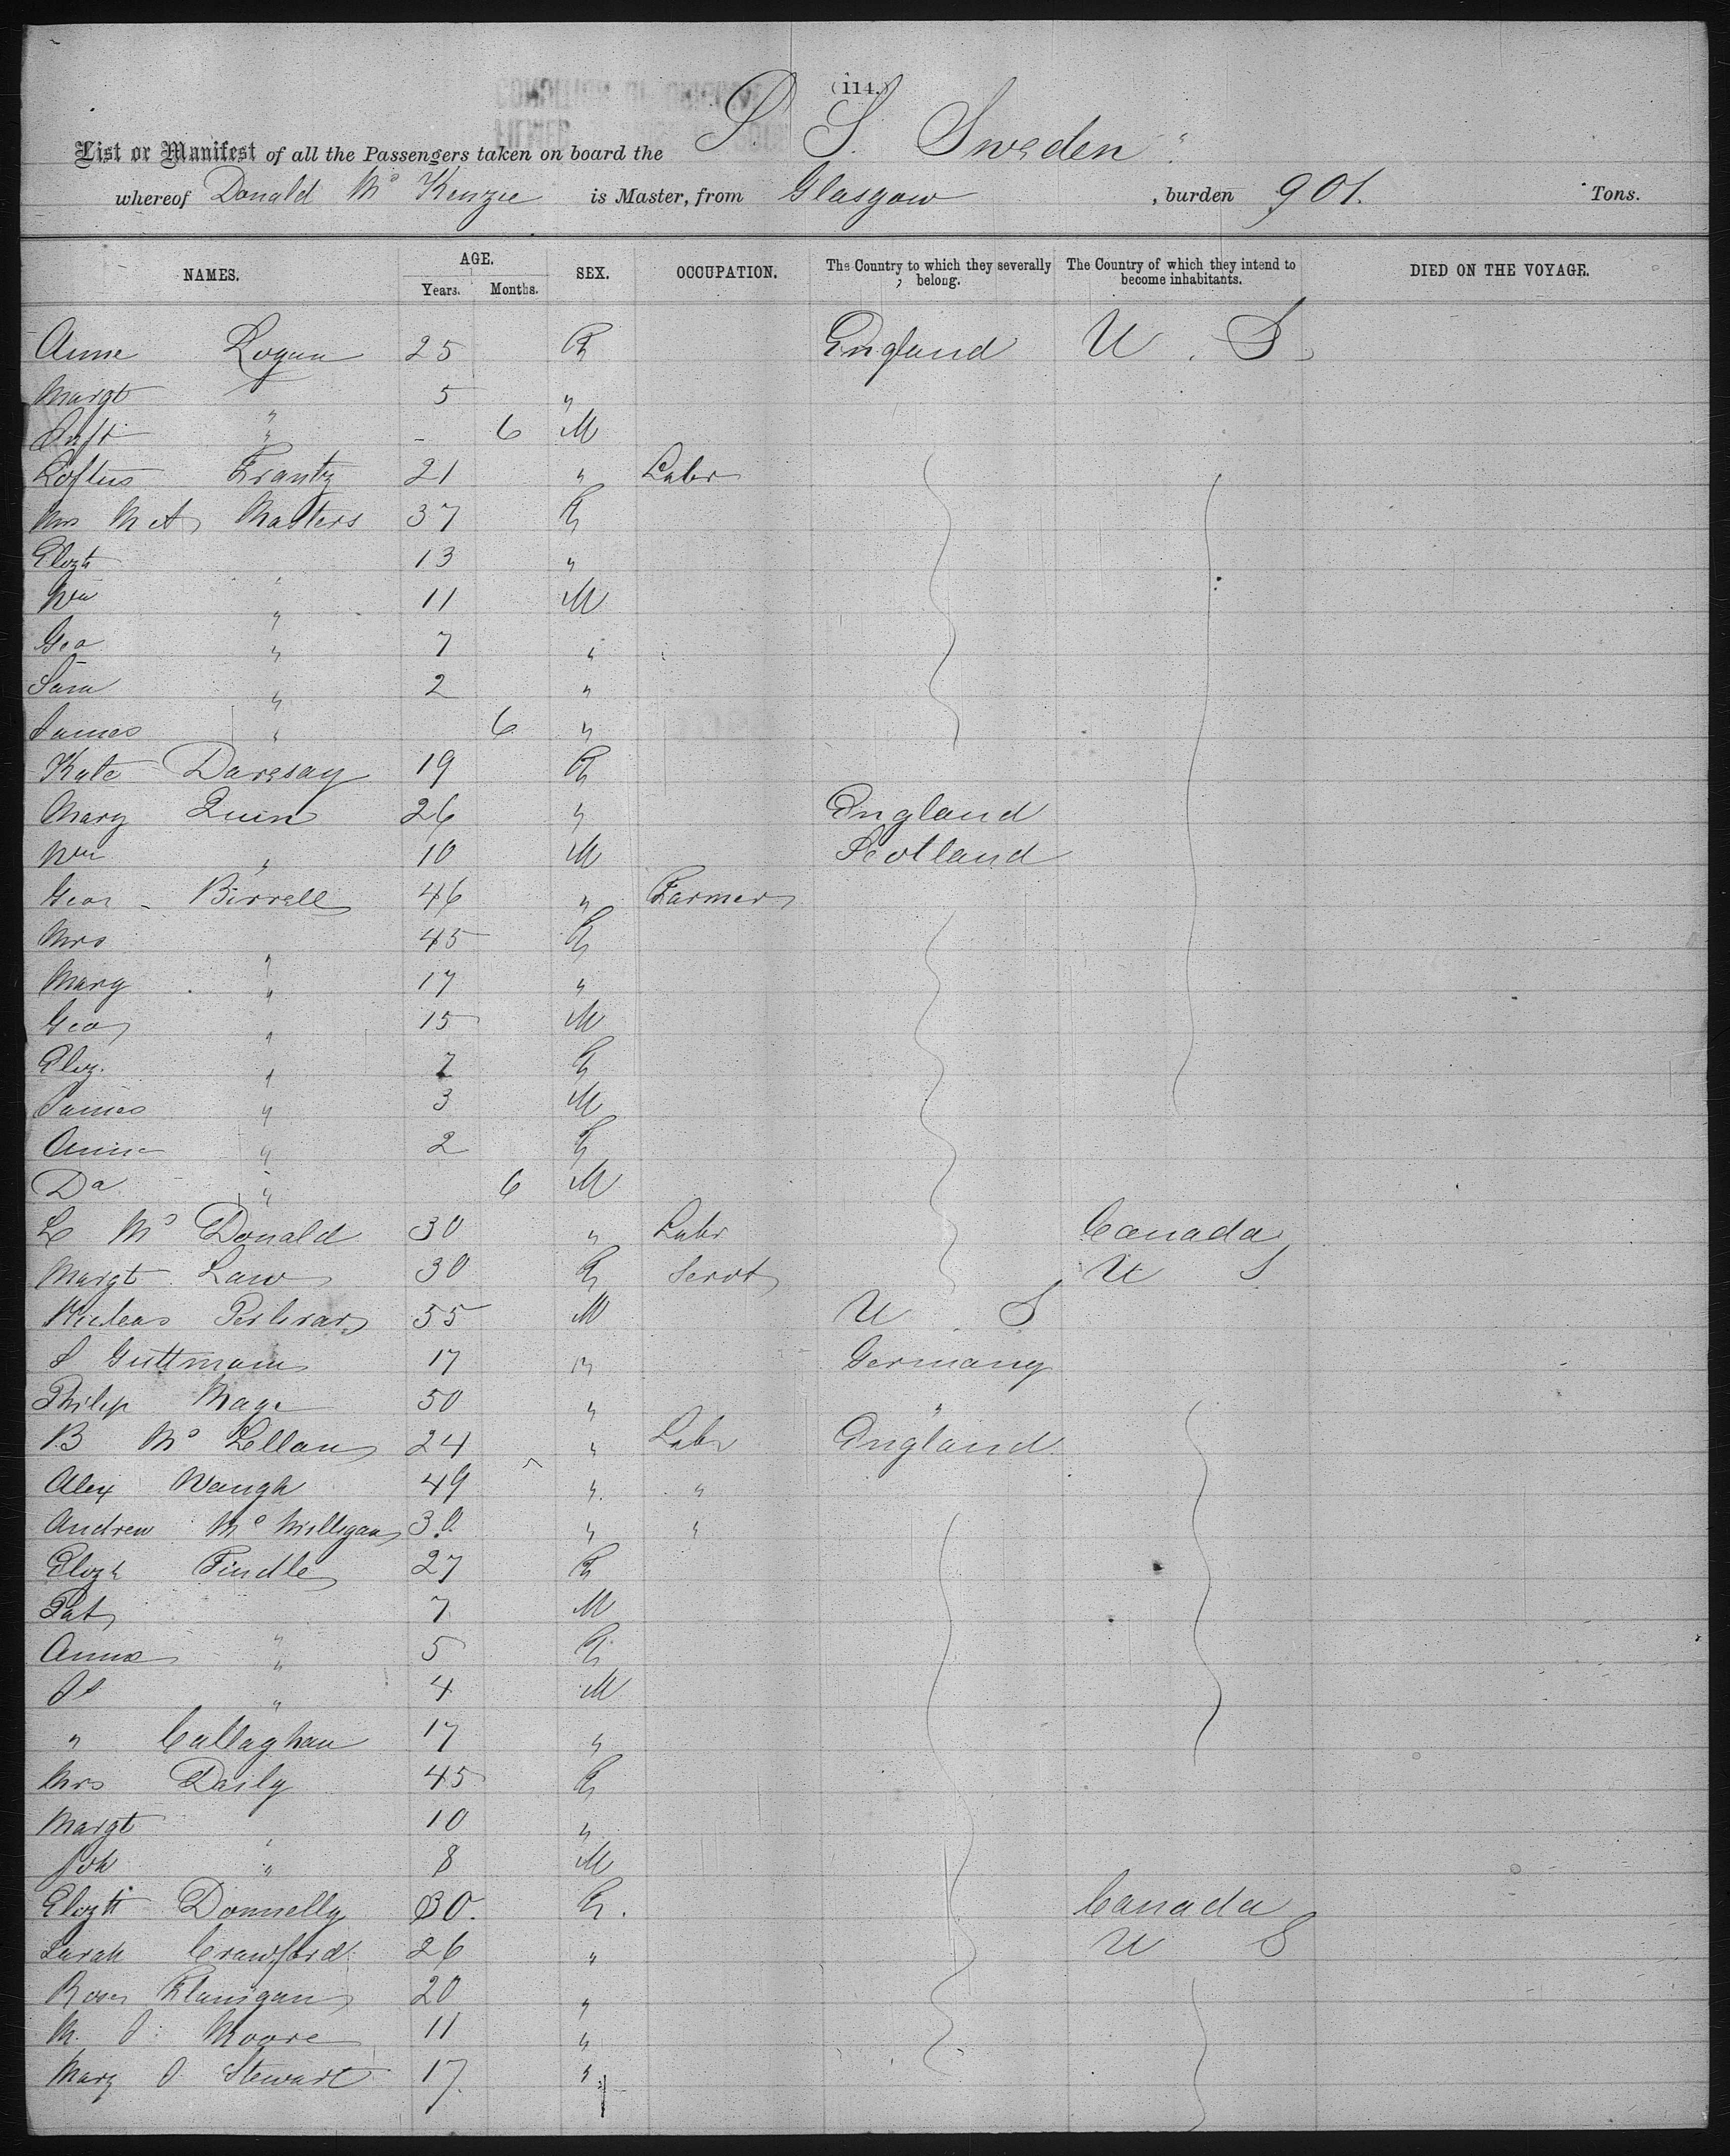 (114.)
List or Manifest of all the Passengers taken on board the S. S. Sweden
whereof Donald Mc Kenzie is Master, from Glasgow , burden 901. Tons.
NAMES. AGE. Years. Months. SEX. OCCUPATION. The Country to which they severally belong. The Country of which they intend to become inhabitants. DIED ON THE VOYAGE.
Anne Logan 25 F England U. S.
Margt " 5 "
Inft " - 6 M
Loftus Frantz 21 " Labr
Mrs M A Masters 37 F
Elizth " 13 "
Wm " 11 M
Geo " 7 "
Sam " 2 "
James " 6 "
Kate Daresay 19 F
Mary Quin 26 " England
Wm " 10 M Scotland
Geor - Birrell 46 " Farmer
Mrs " 45 F
Mary " 17 "
Geo " 15 M
Eliz. " 7 F
James " 3 M
Annie " 2 F
Da " 6 M
L Mc Donald 30 " Labr Canada
Margt Law 30 F Servt U S
55 M U S
S Guttmann 17 " Germany
Philip 50 " "
B Mc Lellan 24 " Labr England
Alex Waugh 49 " "
Andrew Mc Milligan 30. " "
Elizh Findle 27 F
Pat " 7 M
Anna " 5 F
Js " 4 M
" Callaghan 17 "
Mrs Daily 45 F
Margt " 10 "
Joh " 8 M
Elizth Donnelly 30. F. Canada
Sarah Crawford 26 " U S
Rose Flanigan 20 "
M. J. Moore 11 "
Mary J Stewart 17. "